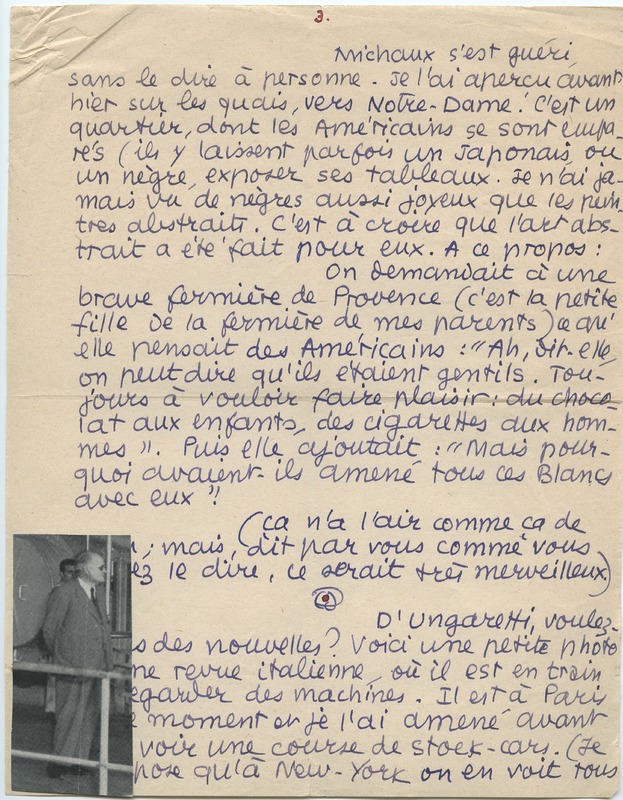 3.
Michaux s'est guéri
sans le dire à personne. Je l'ai aperçu avant
hier sur les quais, vers Notre-Dame. C'est un
quartier, dont les Américains se sont empa-
rés (ils y laissent parfois un Japonais, ou
un nègre, exposer ses tableaux. Je n'ai ja-
mais vu de nègres aussi joyeux que les pein-
tres abstraits. C'est à croire que l'art abs-
trait a été fait pour eux. A ce propos :
On demandait à une
brave fermière de Provence (c'est la petite
fille de la fermière de mes parents) ce qu'
elle pensait des Américains : "Ah, dit-elle,
on peut dire qu'ils étaient gentils. Tou-
jours à vouloir faire plaisir : du choco-
lat aux enfants, des cigarettes aux hom-
mes". Puis elle ajoutait : "Mais pour-
quoi avaient-ils amené tous ces Blancs
avec eux"!
(ça n'a l'air comme ça de
; mais, dit par vous comme vous
ez le dire, ce serait très merveilleux)
D'Ungaretti, voulez-
s des nouvelles? Voici une petite photo
ne revue italienne, où il est en train
egarder des machines. Il est à Paris
e moment et je l'ai amené avant
voir une course de stock-cars. (Je
pose qu'à New-York on en voit tous